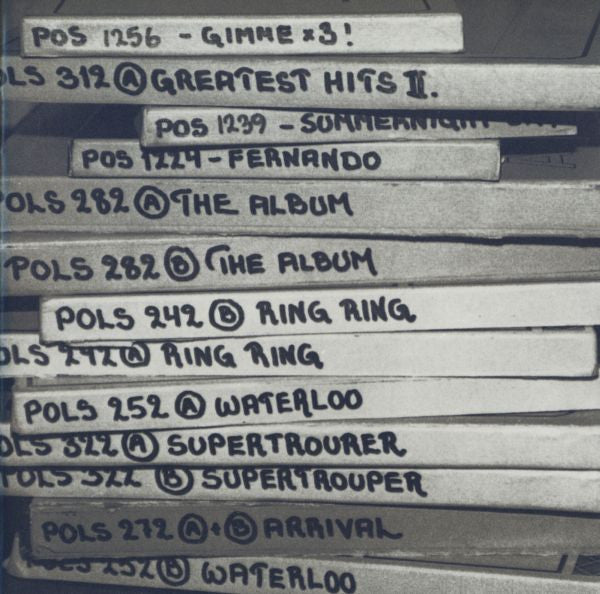 POS 1256 - GIMME x3!
OLS 312 Ⓐ GREATEST HITS II.
POS 1239 - SUMMERNIGHT
POS 1224 - FERNANDO
OLS 282 Ⓐ THE ALBUM
POLS 282 Ⓑ THE ALBUM
POLS 242 Ⓑ RING RING
OLS 242 Ⓐ RING RING
POLS 252 Ⓐ WATERLOO
OLS 322 Ⓐ SUPERTROURER
POLS 322 Ⓑ SUPERTROUPER
POLS 272 Ⓐ+Ⓑ ARRIVAL
POLS 252 Ⓑ WATERLOO